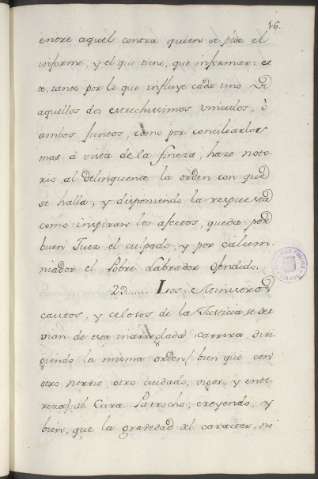 56.
entre aquel contra quien se pide el
informe, y el que tiene, que informar: es
te, tanto por lo que influye cada uno de
aquellos dos estrechisimos vinculos, ò
ambos juntos, como por conciliarlos
mas à vista de la fineza, haze noto
rio al Delinquente la orden con que
se halla, y disponiendo la respuesta
como inspiran los afectos, queda por
buen Juez el culpado, y por calum
niador el Pobre Labrador ofendido.
29..... Los Ministros
cautos, y celosos de la Justicia se des
vian de esa carrera diri
giendo la misma orden, bien que con
otro nervio, otro cuidado, vigor, y ente
reza, al Cura Parrocho, creyendo, y
bien, que la gravedad del caracter, su